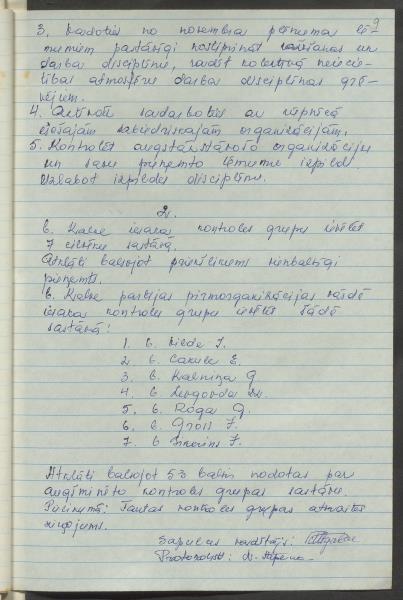 9
3. Vadoties no novembra plēnuma lē-
mumiem pastāvīgi nostiprināt ražošanas un
darba disciplīnu, radīt kolektīvā neiecie-
tības atmosfēru darba disciplīnas grā-
vējiem.
4. Aktīvāk sadarboties ar rūpnīcā
esošajām sabiedriskajām organizācijām.
5. Kontrolēt augstākstāvošo organizāciju
un savu pieņemto lēmumu izpildi.
Uzlabot izpildes disciplīnu.
2.
b. Kalve ierosina kontroles grupu ievēlēt
7 cilvēku sastāvā.
Atklāti balsojot priekšlikums vienbalsīgi
pieņemts.
b. Kalve partijas pirmorganizācijas vārdā
ierosina kontroles grupu ievēlēt šādā
sastāvā:
1. b.
2. b. Cakule E.
3. b. Kalniņa G
4. b.
5. b. Roga G.
6. b. Gross J.
7. b.
Atklāti balsojot 53 balsis nodotas par
augšminēto kontroles grupas sastāvu.
Pielikumā: Tautas kontroles grupas atskaites
ziņojums.
Sapulces vadītājs:
Protokolists: